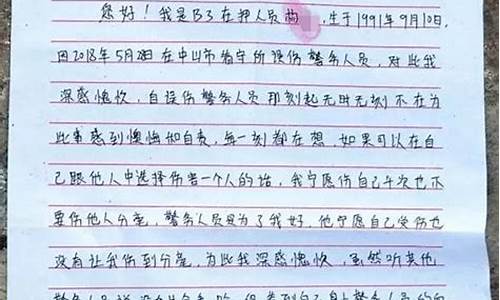 您好！我是B3在押人员尚 ，生于1991年9月10日，
因2018年5月28日在中山市看守所误伤警务人员，对此我
深感愧疚，自误伤警务人员那刻起无时无刻不在为
此事感到懊悔和自责，每一刻都在想，如果可以在自
己跟他人中选择伤害一个人的话，我宁愿伤自己千次也不
要伤他人分毫，警务人员是为了我好，他宁愿自己受伤也
没有让我伤到分毫，为此我深感愧疚，虽然听其他
警务人员说没有什么